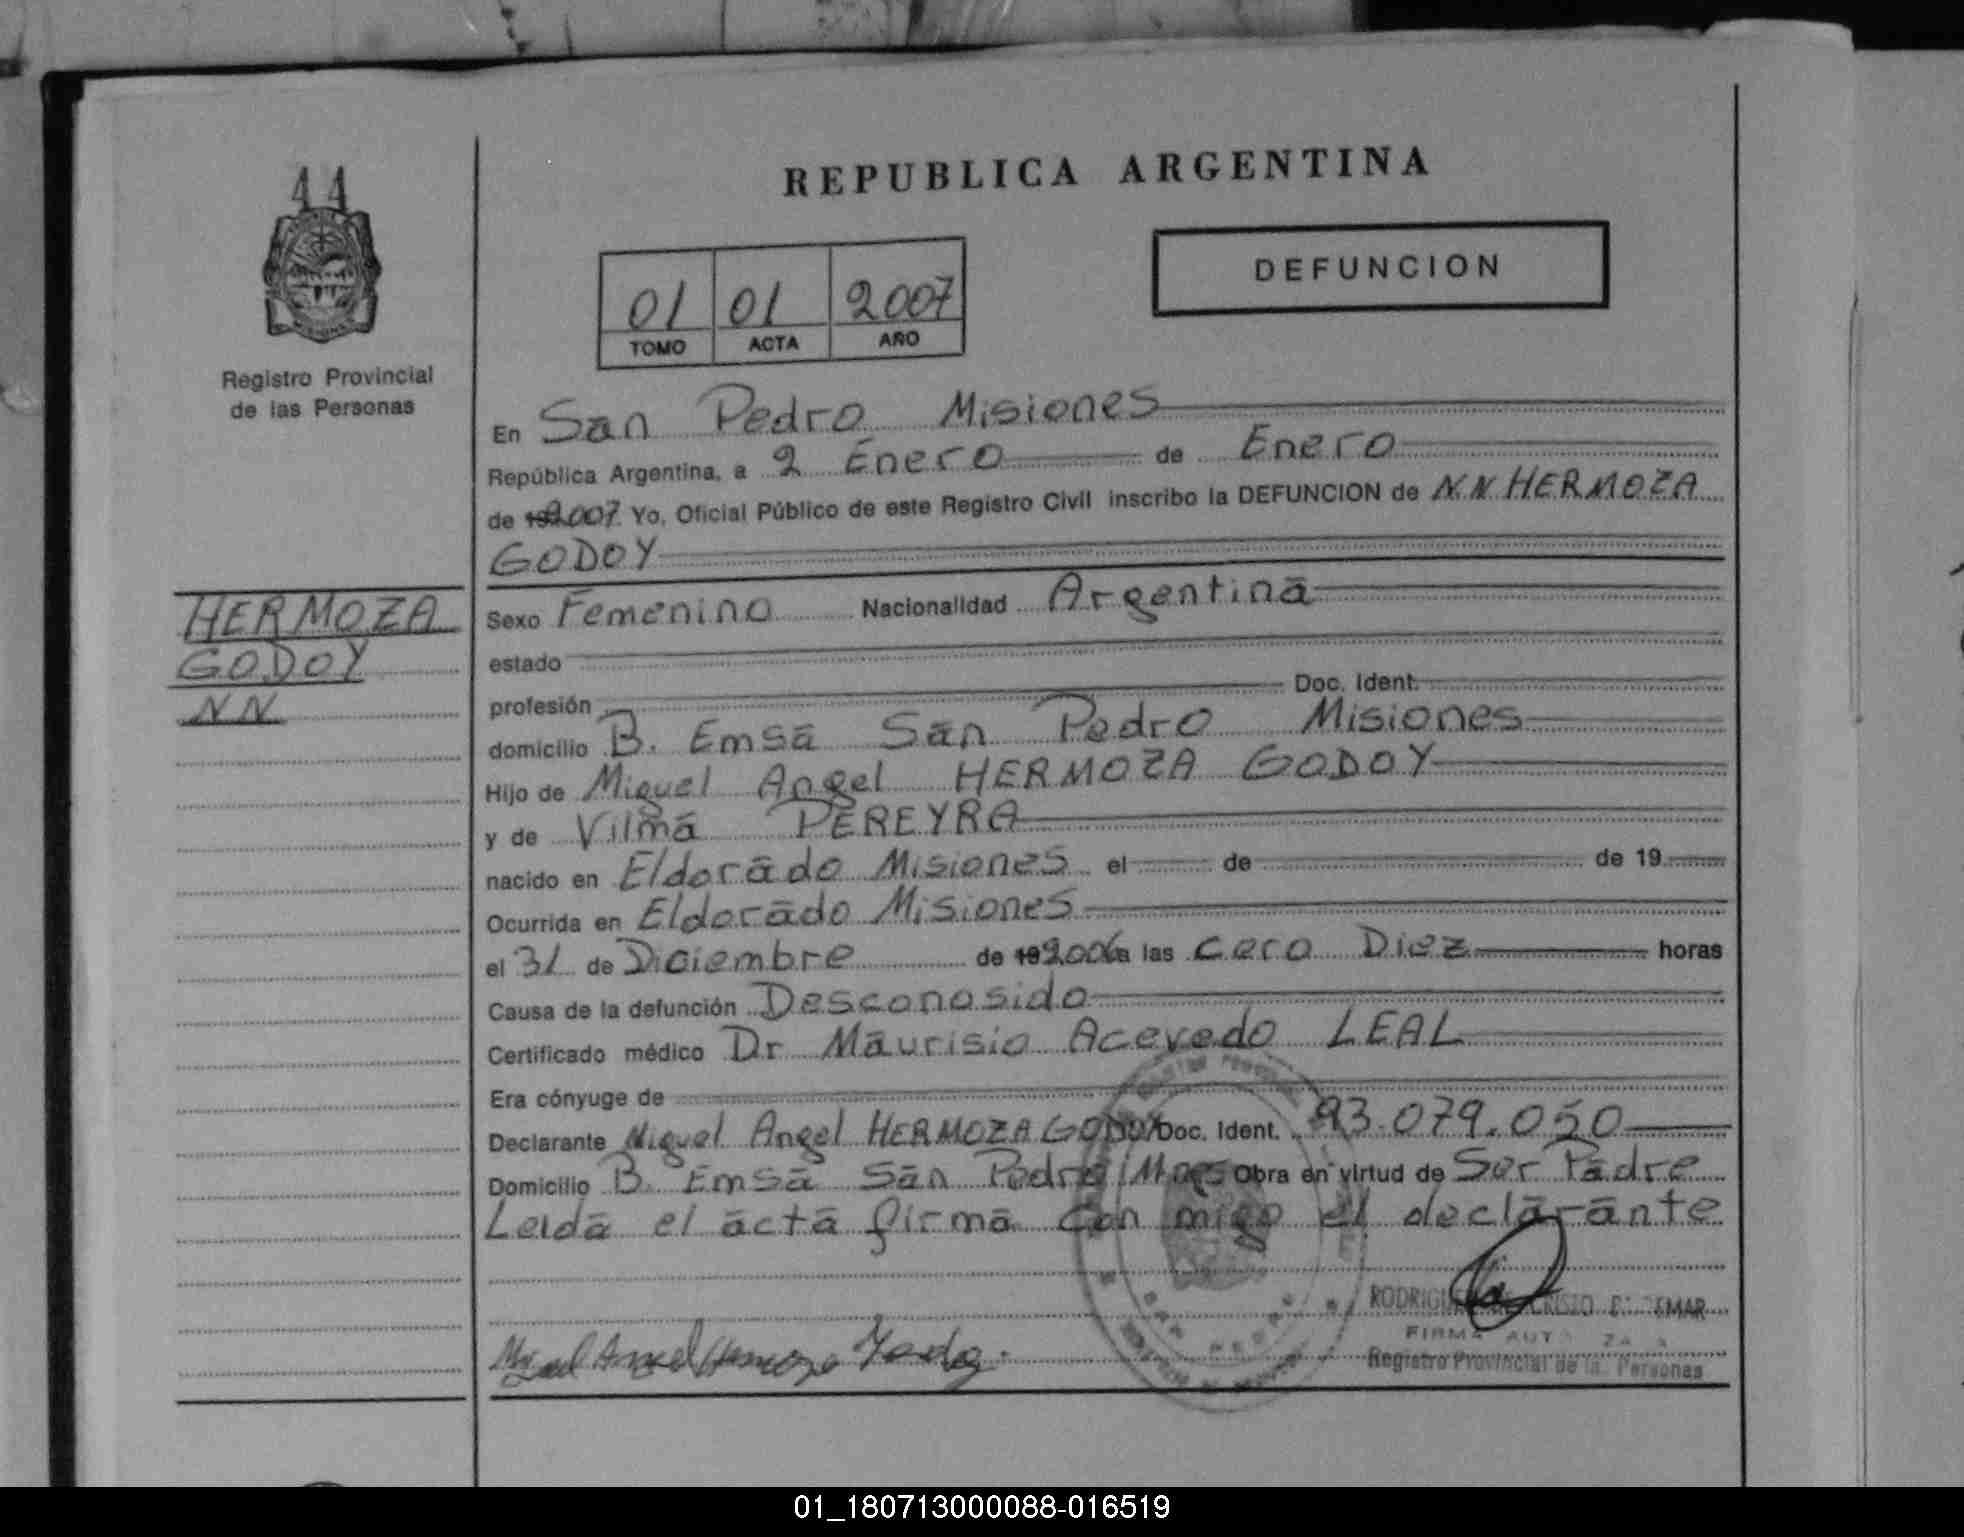 44
REPUBLICA ARGENTINA
DEFUNCION
01 01 2007
TOMO ACTA AÑO
Registro Provincial
de las Personas
En San Pedro Misiones
República Argentina, a 2 Enero de Enero
de 2007 Yo, Oficial Público de este Registro Civil inscribo la DEFUNCION de NN HERMOZA
GODOY
HERMOZA
GODOY
NN
Sexo Femenino Nacionalidad Argentina
estado
profesión Doc. Ident.
domicilio B. Emsa San Pedro Misiones
Hijo de Miguel Angel HERMOZA GODOY
y de Vilma PEREYRA
nacido en Eldorado Misiones el de de 19
Ocurrida en Eldorado Misiones
el 31 de Diciembre de 2006 a las cero Diez horas
Causa de la defunción Desconosido
Certificado médico Dr Maurisio Acevedo LEAL
Era cónyuge de
Declarante Miguel Angel HERMOZA GODOY Doc. Ident. 93.079.050
Domicilio B. Emsa San Pedro Mnes Obra en virtud de Ser Padre
Leida el acta firma con migo el declarante
Miguel Angel Hermoza Godoy
FIRMA
Registro Provincial de las Personas
01_180713000088-016519